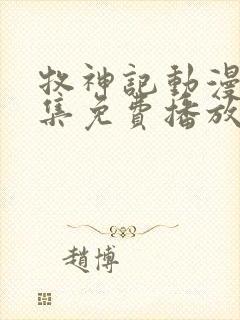 牧神記動漫
集免費播放
趙博